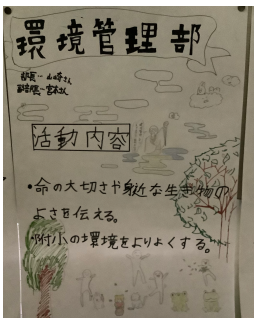 環境管理部
部長…山崎さん
副部長…宮本さん
活動内容
・命の大切さや身近な生き物の
よさを伝える。
・附小の環境をよりよくする。